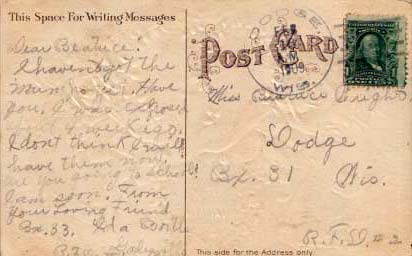 This Space For Writing Messages
POST CARD
WIS.
1909
Dear Beatrice:
I havent got the
have
you, I was exposed
week ago,
I dont think I will
have them now,
are you going to school
I am soon. From
your Loving Friend
Bx. 33. Ida
Miss Beatrice
Dodge
Bx. 31 Wis.
R.F.D. # 2
This side for the Address only.